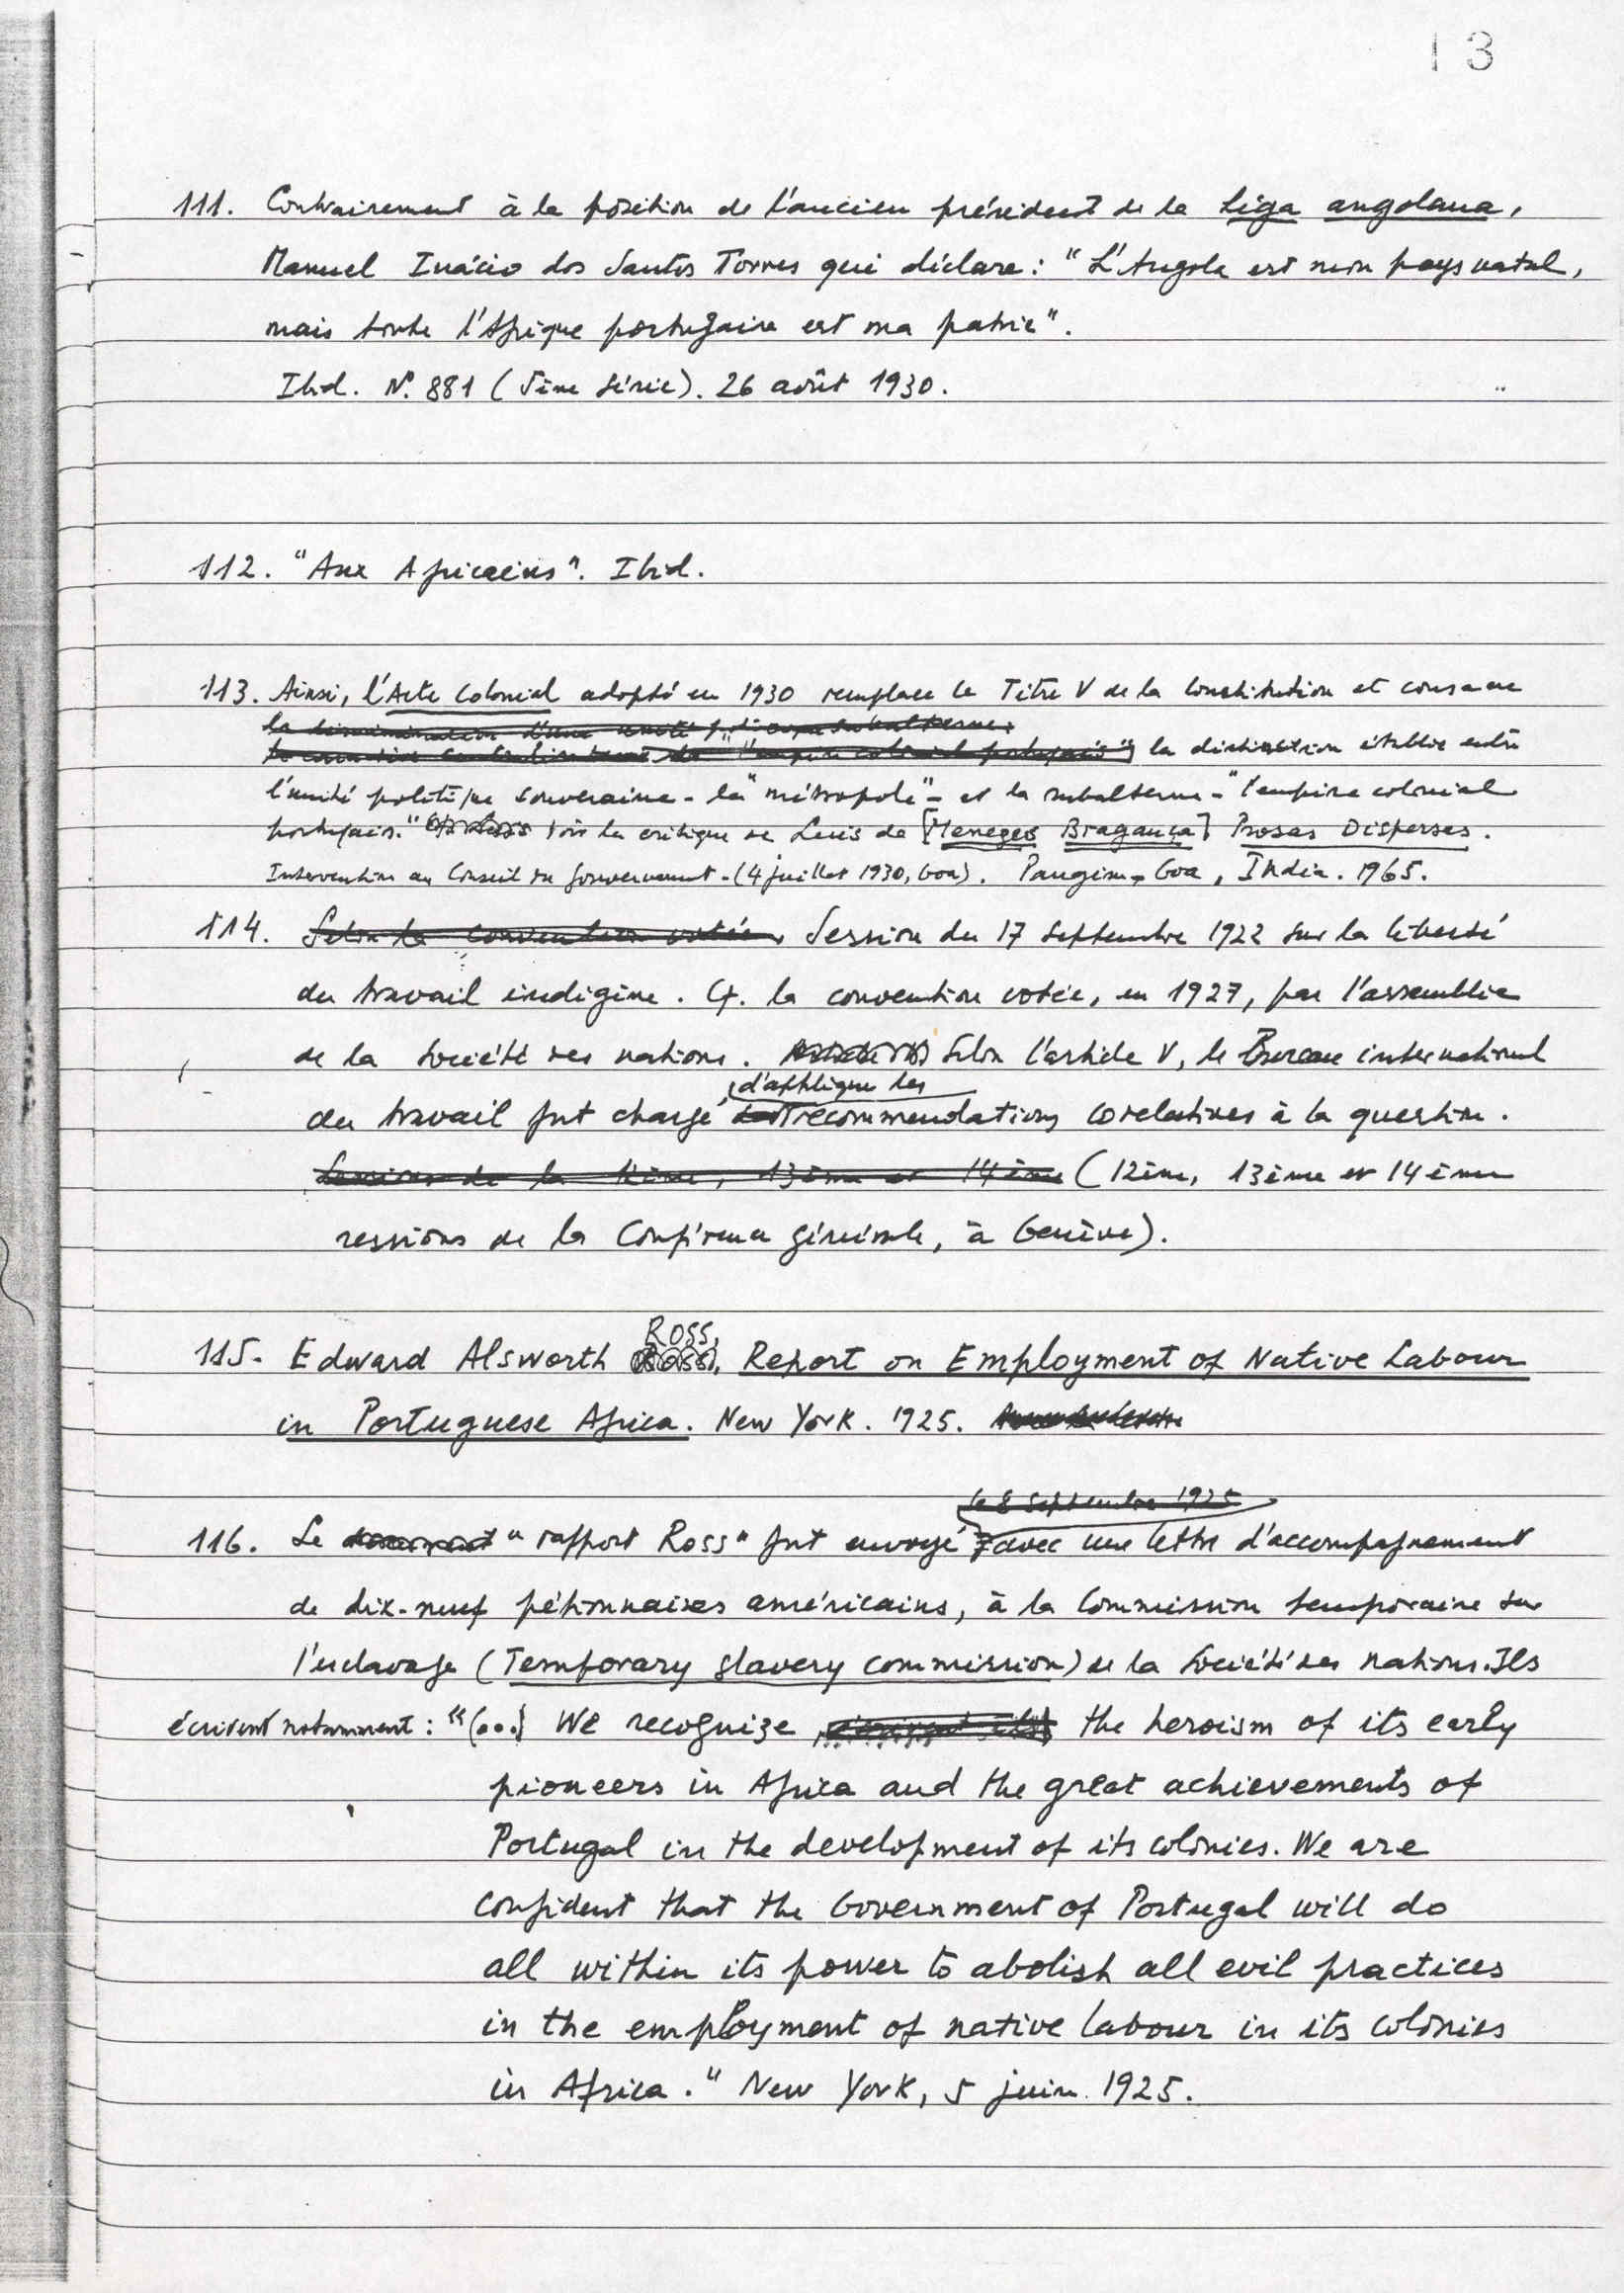 13
111. Contrairement à la position de l'ancien président de la Liga angolana,
Manuel Inácio dos Santos Torres qui déclare : "L'Angola est mon pays natal,
mais toute l'Afrique portugaise est ma patrie".
Ibid. Nº 881 (5ème série). 26 août 1930.
112. "Aux Africains". Ibid.
113. Ainsi, l'Acte Colonial adopté en 1930 remplace le Titre V de la Constitution et consacre
la distinction établie entre
l'unité politique souveraine - la "métropole" - et la subalterne - "l'empire colonial
portugais." Voir la critique de Luis de [Menezes Bragança] Prosas Dispersas.
Intervention au Conseil du gouvernement - (4 juillet 1930, Goa). Pangim - Goa, India. 1965.
114. Selon la convention votée, Session du 17 septembre 1922 sur la liberté
du travail indigène. Cf. la convention votée, en 1927, par l'assemblée
de la Société des nations. Selon l'article V, le Bureau international
d'applique les
du travail fut chargé recommendations corelatives à la question.
Sessions de la 12ème, 13ème et 14ème (12ème, 13ème et 14ème
sessions de la Conférence générale, à Genève).
Ross,
115. Edward Alsworth Report on Employment of Native Labour
in Portuguese Africa. New York. 1925.
le 8 septembre 1925
116. Le document "rapport Ross" fut envoyé avec une lettre d'accompagnement
de dix-neuf pétionnaires américains, à la Commission temporaire sur
l'esclavage (Temporary slavery commission) de la Société des nations. Ils
écrivent notamment : "(...) We recognize the heroism of its early
pioneers in Africa and the great achievements of
Portugal in the development of its colonies. We are
confident that the Government of Portugal will do
all within its power to abolish all evil practices
in the employment of native labour in its colonies
in Africa." New York, 5 juin 1925.